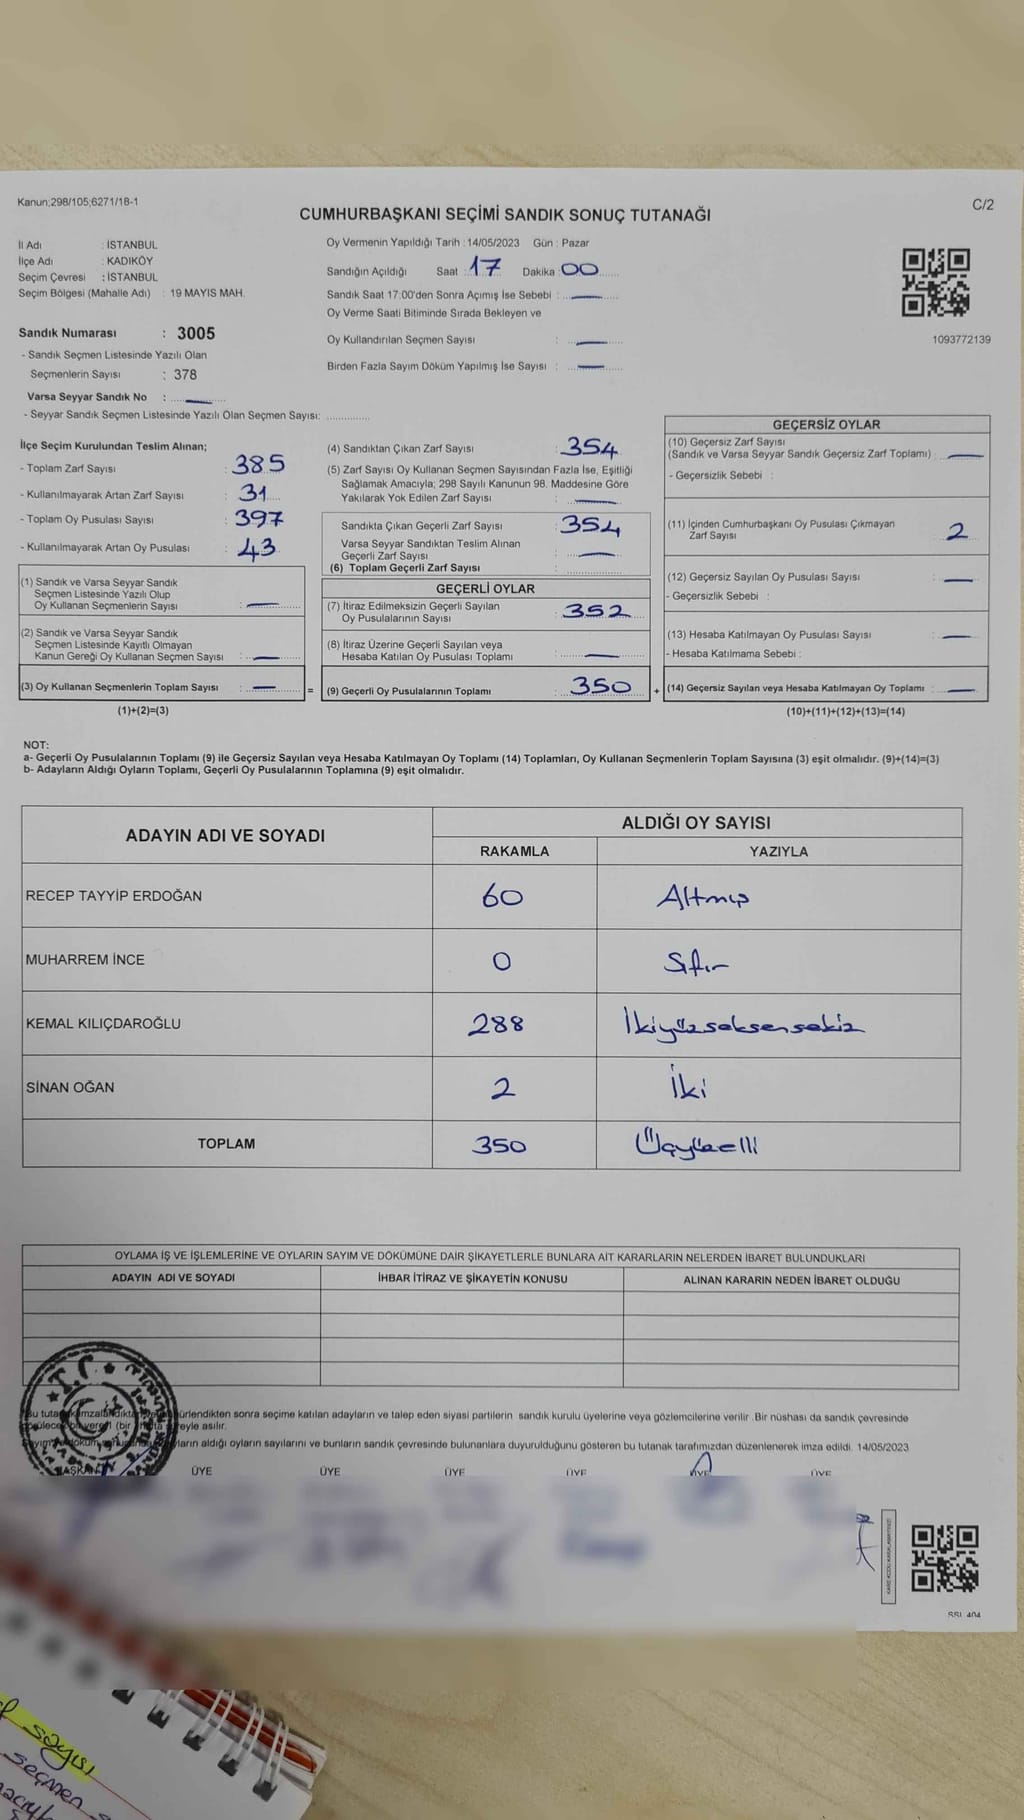 Kanun;298/105;6271/18-1
C/2
CUMHURBAŞKANI SEÇİMİ SANDIK SONUÇ TUTANAĞI
İl Adı : İSTANBUL
İlçe Adı : KADIKÖY
Seçim Çevresi : İSTANBUL
Seçim Bölgesi (Mahalle Adı) : 19 MAYIS MAH.
Oy Vermenin Yapıldığı Tarih : 14/05/2023 Gün : Pazar
Sandığın Açıldığı Saat : 17 Dakika : 00
Sandık Saat 17:00'den Sonra Açımış İse Sebebi : —
Oy Verme Saati Bitiminde Sırada Bekleyen ve
Oy Kullandırılan Seçmen Sayısı : —
Birden Fazla Sayım Döküm Yapılmış İse Sayısı : —
1093772139
Sandık Numarası : 3005
- Sandık Seçmen Listesinde Yazılı Olan
Seçmenlerin Sayısı : 378
Varsa Seyyar Sandık No : —
- Seyyar Sandık Seçmen Listesinde Yazılı Olan Seçmen Sayısı:
İlçe Seçim Kurulundan Teslim Alınan;
- Toplam Zarf Sayısı : 385
- Kullanılmayarak Artan Zarf Sayısı : 31
- Toplam Oy Pusulası Sayısı : 397
- Kullanılmayarak Artan Oy Pusulası : 43
(1) Sandık ve Varsa Seyyar Sandık
Seçmen Listesinde Yazılı Olup
Oy Kullanan Seçmenlerin Sayısı : —
(2) Sandık ve Varsa Seyyar Sandık
Seçmen Listesinde Kayıtlı Olmayan
Kanun Gereği Oy Kullanan Seçmen Sayısı : —
(3) Oy Kullanan Seçmenlerin Toplam Sayısı : — =
(1)+(2)=(3)
(4) Sandıktan Çıkan Zarf Sayısı : 354
(5) Zarf Sayısı Oy Kullanan Seçmen Sayısından Fazla İse, Eşitliği
Sağlamak Amacıyla; 298 Sayılı Kanunun 98. Maddesine Göre
Yakılarak Yok Edilen Zarf Sayısı : —
Sandıkta Çıkan Geçerli Zarf Sayısı : 354
Varsa Seyyar Sandıktan Teslim Alınan
Geçerli Zarf Sayısı : —
(6) Toplam Geçerli Zarf Sayısı :
GEÇERLİ OYLAR
(7) İtiraz Edilmeksizin Geçerli Sayılan
Oy Pusulalarının Sayısı : 352
(8) İtiraz Üzerine Geçerli Sayılan veya
Hesaba Katılan Oy Pusulası Toplamı : —
(9) Geçerli Oy Pusulalarının Toplamı : 350 +
GEÇERSİZ OYLAR
(10) Geçersiz Zarf Sayısı
(Sandık ve Varsa Seyyar Sandık Geçersiz Zarf Toplamı) : —
- Geçersizlik Sebebi :
(11) İçinden Cumhurbaşkanı Oy Pusulası Çıkmayan
Zarf Sayısı : 2
(12) Geçersiz Sayılan Oy Pusulası Sayısı : —
- Geçersizlik Sebebi :
(13) Hesaba Katılmayan Oy Pusulası Sayısı : —
- Hesaba Katılmama Sebebi :
(14) Geçersiz Sayılan veya Hesaba Katılmayan Oy Toplamı : —
(10)+(11)+(12)+(13)=(14)
NOT:
a- Geçerli Oy Pusulalarının Toplamı (9) ile Geçersiz Sayılan veya Hesaba Katılmayan Oy Toplamı (14) Toplamları, Oy Kullanan Seçmenlerin Toplam Sayısına (3) eşit olmalıdır. (9)+(14)=(3)
b- Adayların Aldığı Oyların Toplamı, Geçerli Oy Pusulalarının Toplamına (9) eşit olmalıdır.
ADAYIN ADI VE SOYADI
ALDIĞI OY SAYISI
RAKAMLA YAZIYLA
RECEP TAYYİP ERDOĞAN 60 Altmış
MUHARREM İNCE 0 Sıfır
KEMAL KILIÇDAROĞLU 288 İkiyüzseksensekiz
SİNAN OĞAN 2 İki
TOPLAM 350 Üçyüzelli
OYLAMA İŞ VE İŞLEMLERİNE VE OYLARIN SAYIM VE DÖKÜMÜNE DAİR ŞİKAYETLERLE BUNLARA AİT KARARLARIN NELERDEN İBARET BULUNDUKLARI
ADAYIN ADI VE SOYADI İHBAR İTİRAZ VE ŞİKAYETİN KONUSU ALINAN KARARIN NEDEN İBARET OLDUĞU
T.C.
Bu sonra seçime katılan adayların ve talep eden siyasi partilerin sandık kurulu üyelerine veya gözlemcilerine verilir. Bir nüshası da sandık çevresinde
asılır.
aldığı oyların sayılarını ve bunların sandık çevresinde bulunanlara duyurulduğunu gösteren bu tutanak tarafımızdan düzenlenerek imza edildi. 14/05/2023
BAŞKAN ÜYE ÜYE ÜYE ÜYE ÜYE ÜYE
sayısı
seçmen